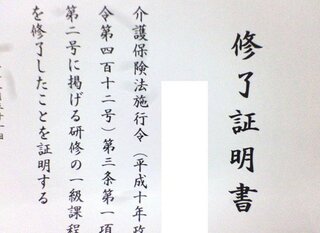 修了証明書
介護保険法施行令(平成十年政
令第四百十二号)第三条第一項
第二号に掲げる研修の一級課程
を修了したことを証明する